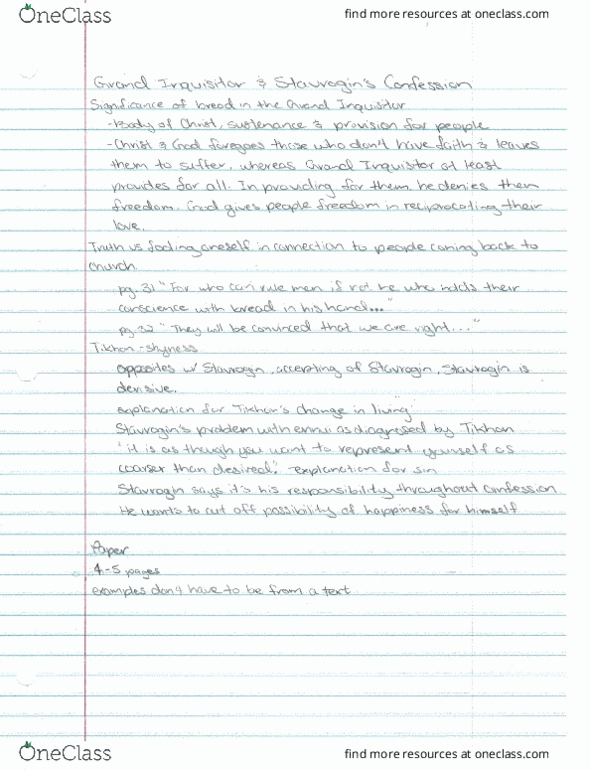 OneClass
find more resources at oneclass.com
Grand Inquisitor & Stavrogin's Confession
Significance of bread in the Grand Inquisitor
-Body of Christ, sustenance & provision for people
-Christ & God foregoes those who don't have faith & leaves
them to suffer, whereas Grand Inquisitor at least
provides for all. In providing for them he denies them
freedom. God gives people freedom in reciprocating their
love.
Truth vs fooling oneself in connection to people coming back to
church.
pg. 31 "For who can rule men if not he who holds their
conscience with bread in his hand..."
pg 32 "They will be convinced that we are right..."
Tikhon - shyness
opposites w/ Stavrogin, accepting of Stavrogin, Stavrogin is
derisive.
explanation for Tikhon's change in living
Stavrogin's problem with ennui as diagnosed by Tikhon
"it is as though you want to represent yourself as
coarser than desired." explanation for sin
Stavrogin says it's his responsibility throughout confession
He wants to cut off possibility of happiness for himself
Paper
4-5 pages
examples don't have to be from a text
OneClass
find more resources at oneclass.com